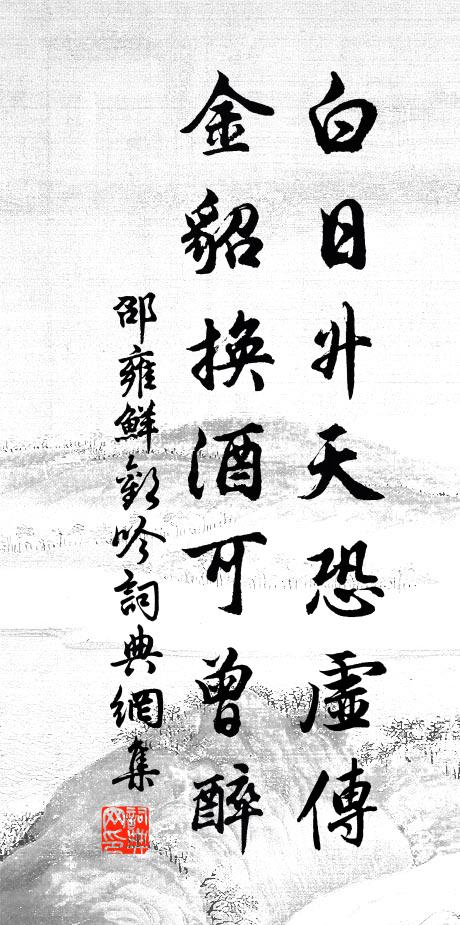 白日升天恐虛傳
金貂換酒可曾醉
邵雍鮮歡吟詞典網集
詞典网印